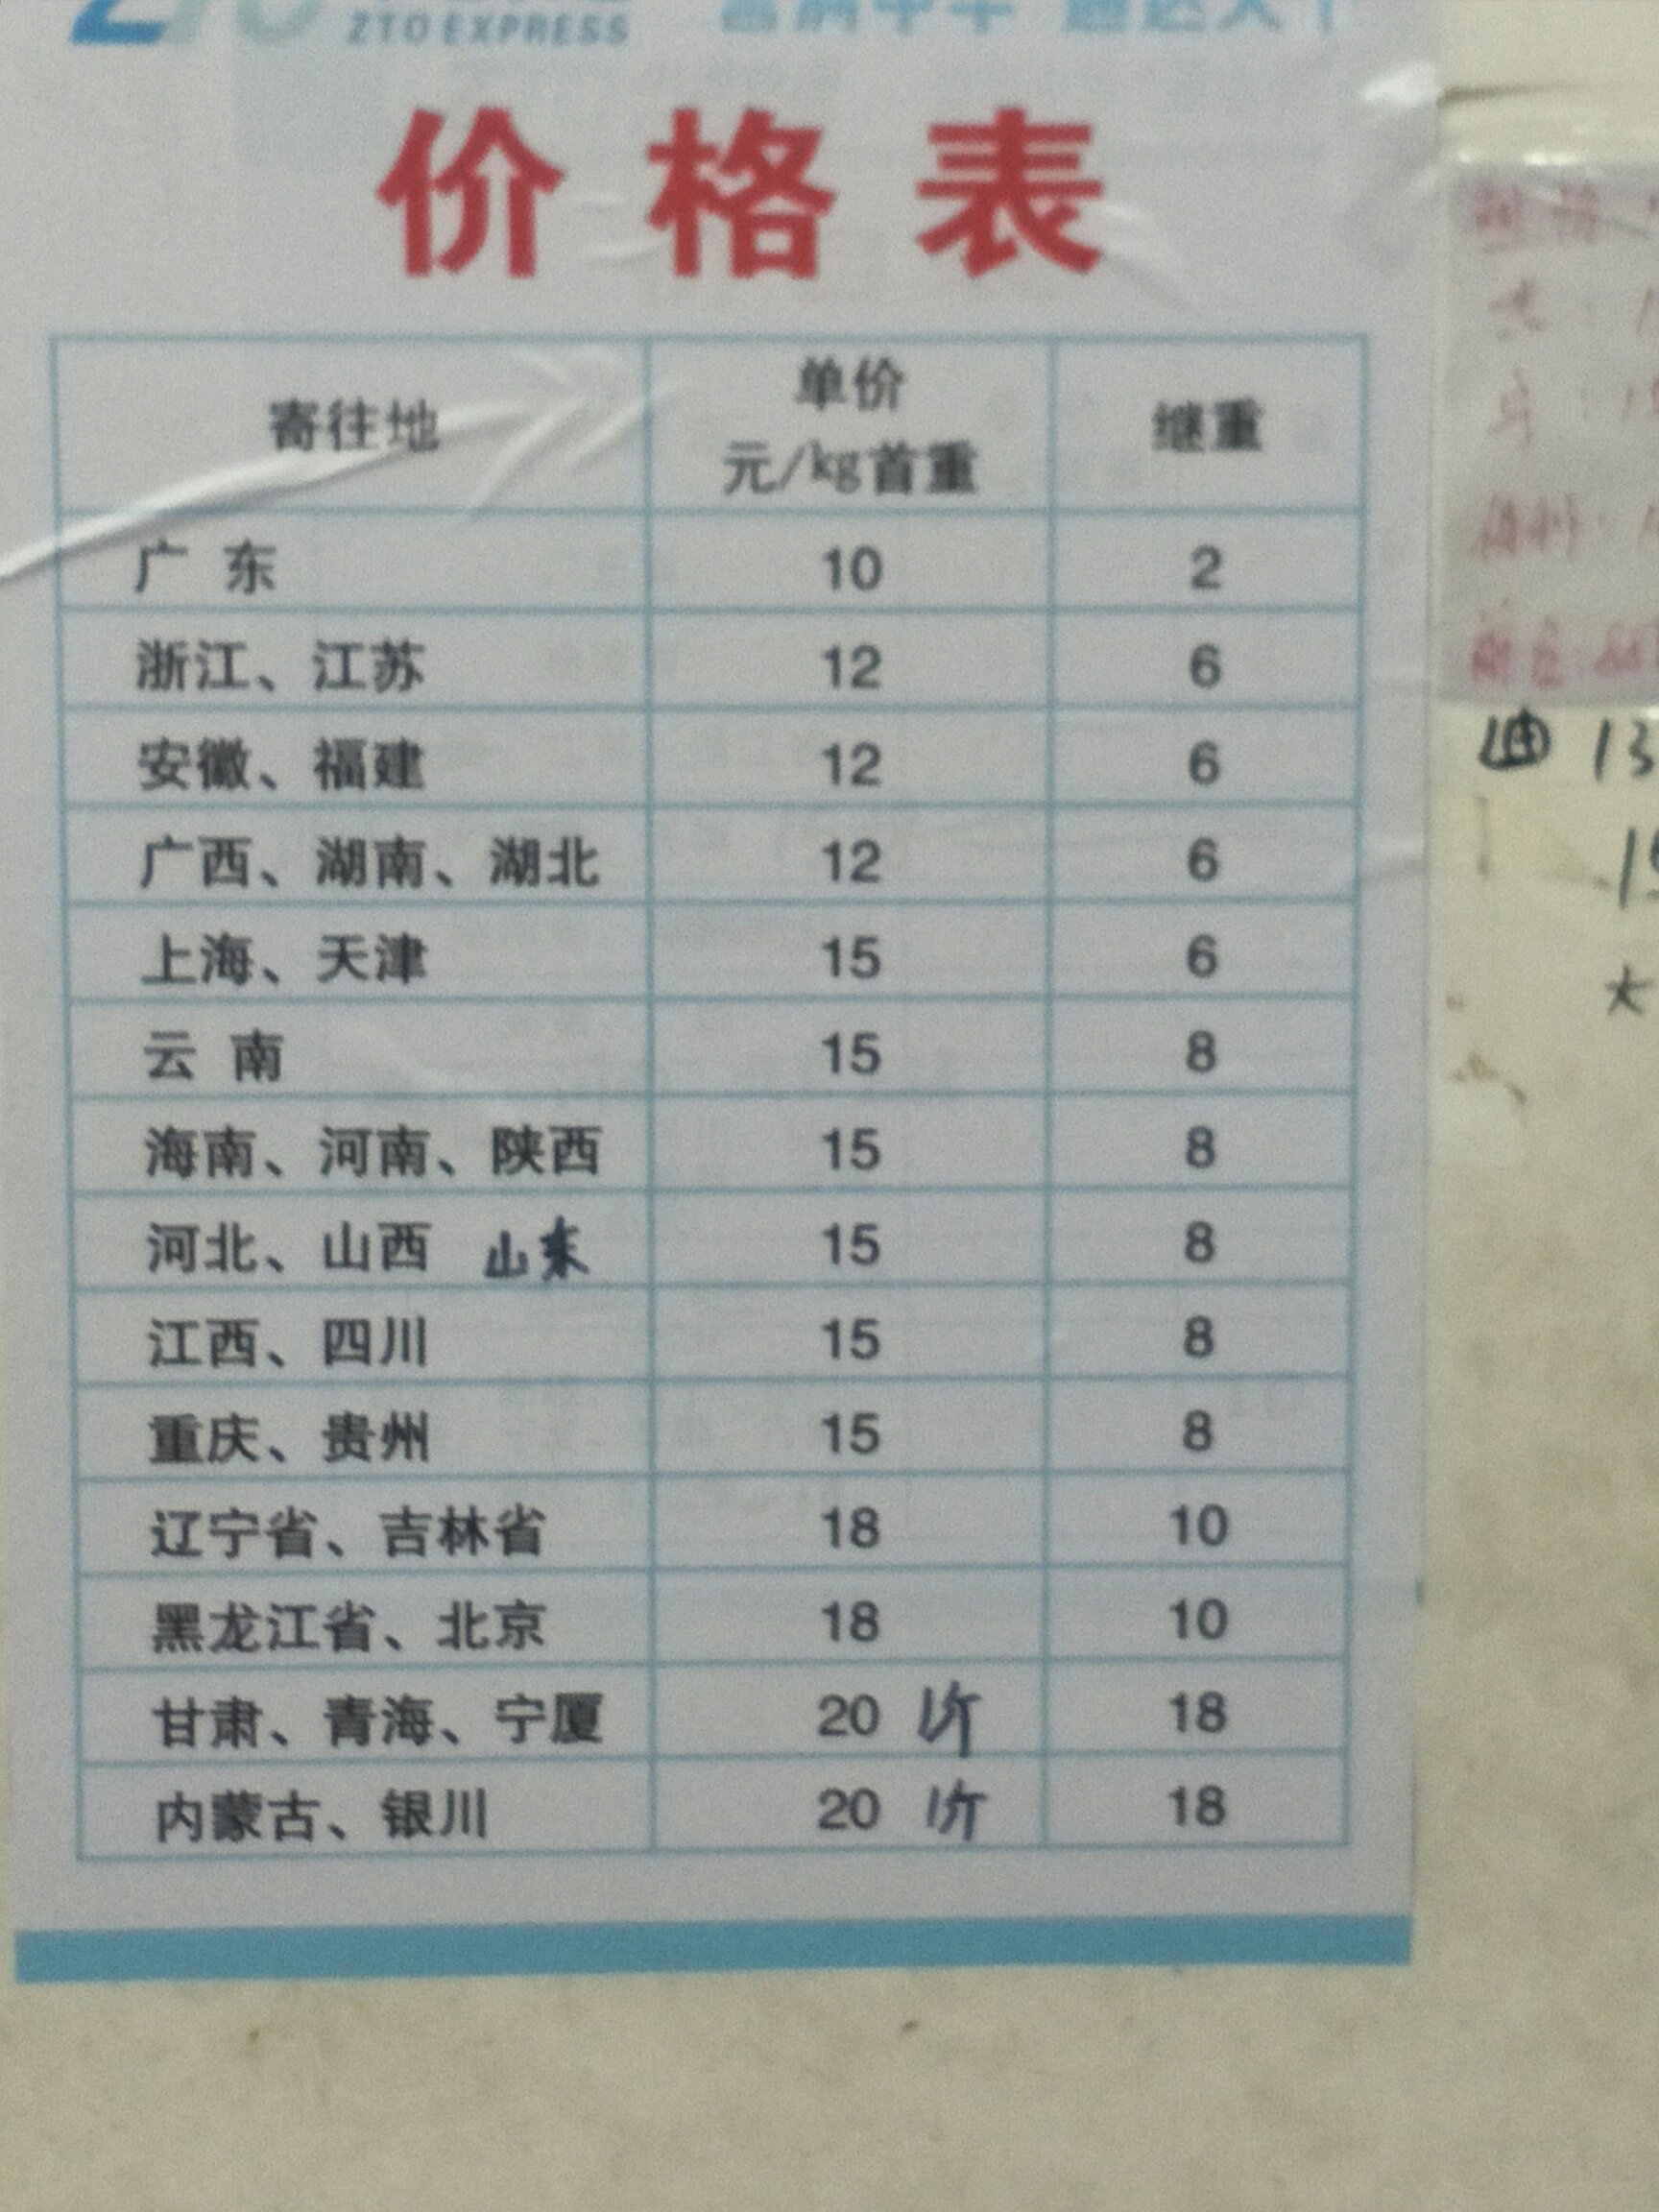 ZTO EXPRESS
价格表
寄往地 单价 元/kg首重 继重
广东 10 2
浙江、江苏 12 6
安徽、福建 12 6
广西、湖南、湖北 12 6
上海、天津 15 6
云南 15 8
海南、河南、陕西 15 8
河北、山西 山东 15 8
江西、四川 15 8
重庆、贵州 15 8
辽宁省、吉林省 18 10
黑龙江省、北京 18 10
甘肃、青海、宁厦 20 1斤 18
内蒙古、银川 20 1斤 18
13